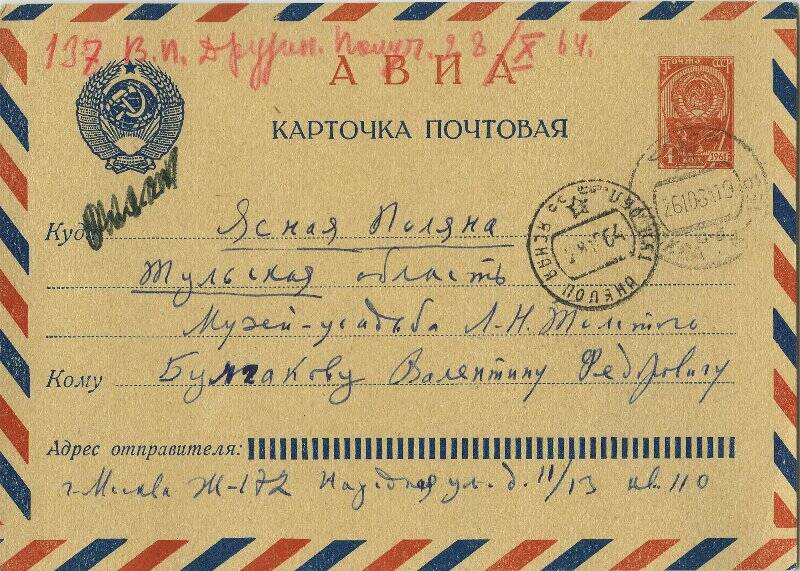 137 В.П. Дружин. Получ. 28/X 64.
АВИА
КАРТОЧКА ПОЧТОВАЯ
ПОЧТА СССР
4 КОП. 1961
Куда Ясная Поляна
Тульская область
Музей-усадьба Л.Н. Толстого
Кому Булгакову Валентину Федоровичу
Адрес отправителя:
г. Москва Ж-172 Народная ул. д. 11/13 кв. 110
ЯСНАЯ ПОЛЯНА